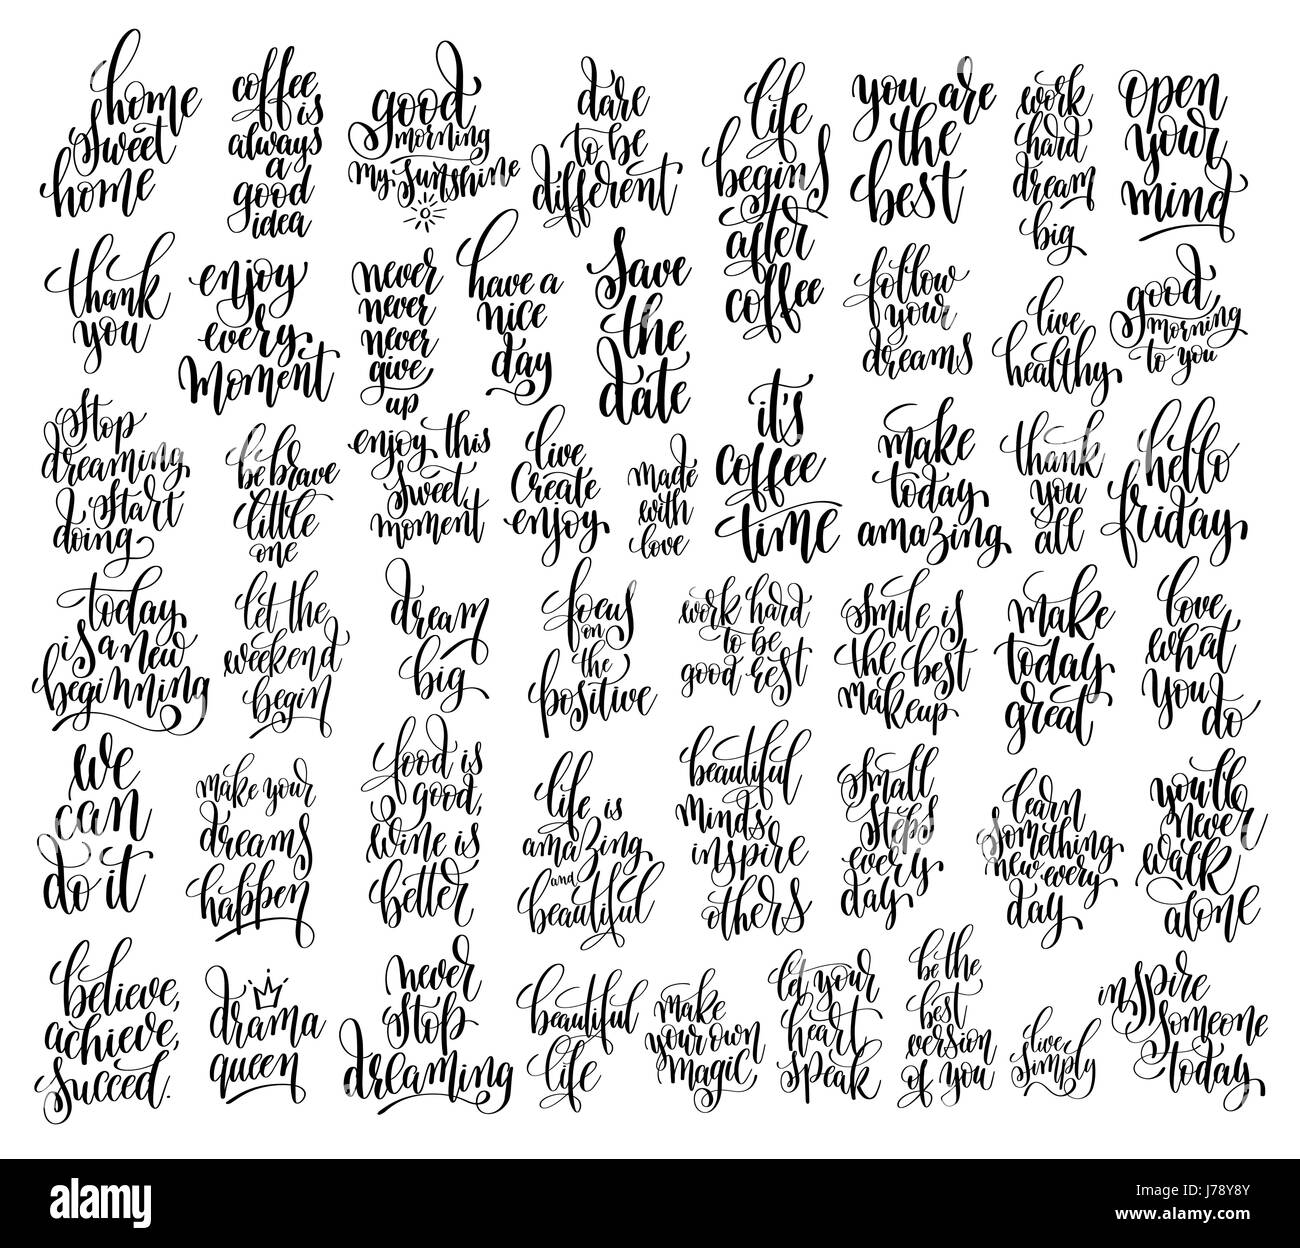 home
sweet
home
coffee
is
always
a
good
idea
good
morning
my sunshine
dare
to be
different
life
begins
after
coffee
you are
the
best
work
hard
dream
big
open
your
mind
thank
you
enjoy
every
moment
never
never
never
give
up
have a
nice
day
save
the
date
follow
your
dreams
live
healthy
good
morning
to you
stop
dreaming
start
doing
be brave
little
one
enjoy this
sweet
moment
live
create
enjoy
made
with
love
it's
coffee
time
make
today
amazing
thank
you
all
hello
friday
today
is a new
beginning
let the
weekend
begin
dream
big
focus
on
the
positive
work hard
to be
good rest
smile is
the best
makeup
make
today
great
love
what
you
do
we
can
do it
make your
dreams
happen
food is
good,
wine is
better
life is
amazing
and
beautiful
beautiful
minds
inspire
others
small
steps
every
day
learn
something
new every
day
you'll
never
walk
alone
believe,
achieve,
succeed.
drama
queen
never
stop
dreaming
beautiful
life
make
your own
magic
let your
heart
speak
be the
best
version
of you
live
simply
inspire
someone
today
a
alamy
a
alamy
a
alamy stock photo
J78Y8Y
www.alamy.com